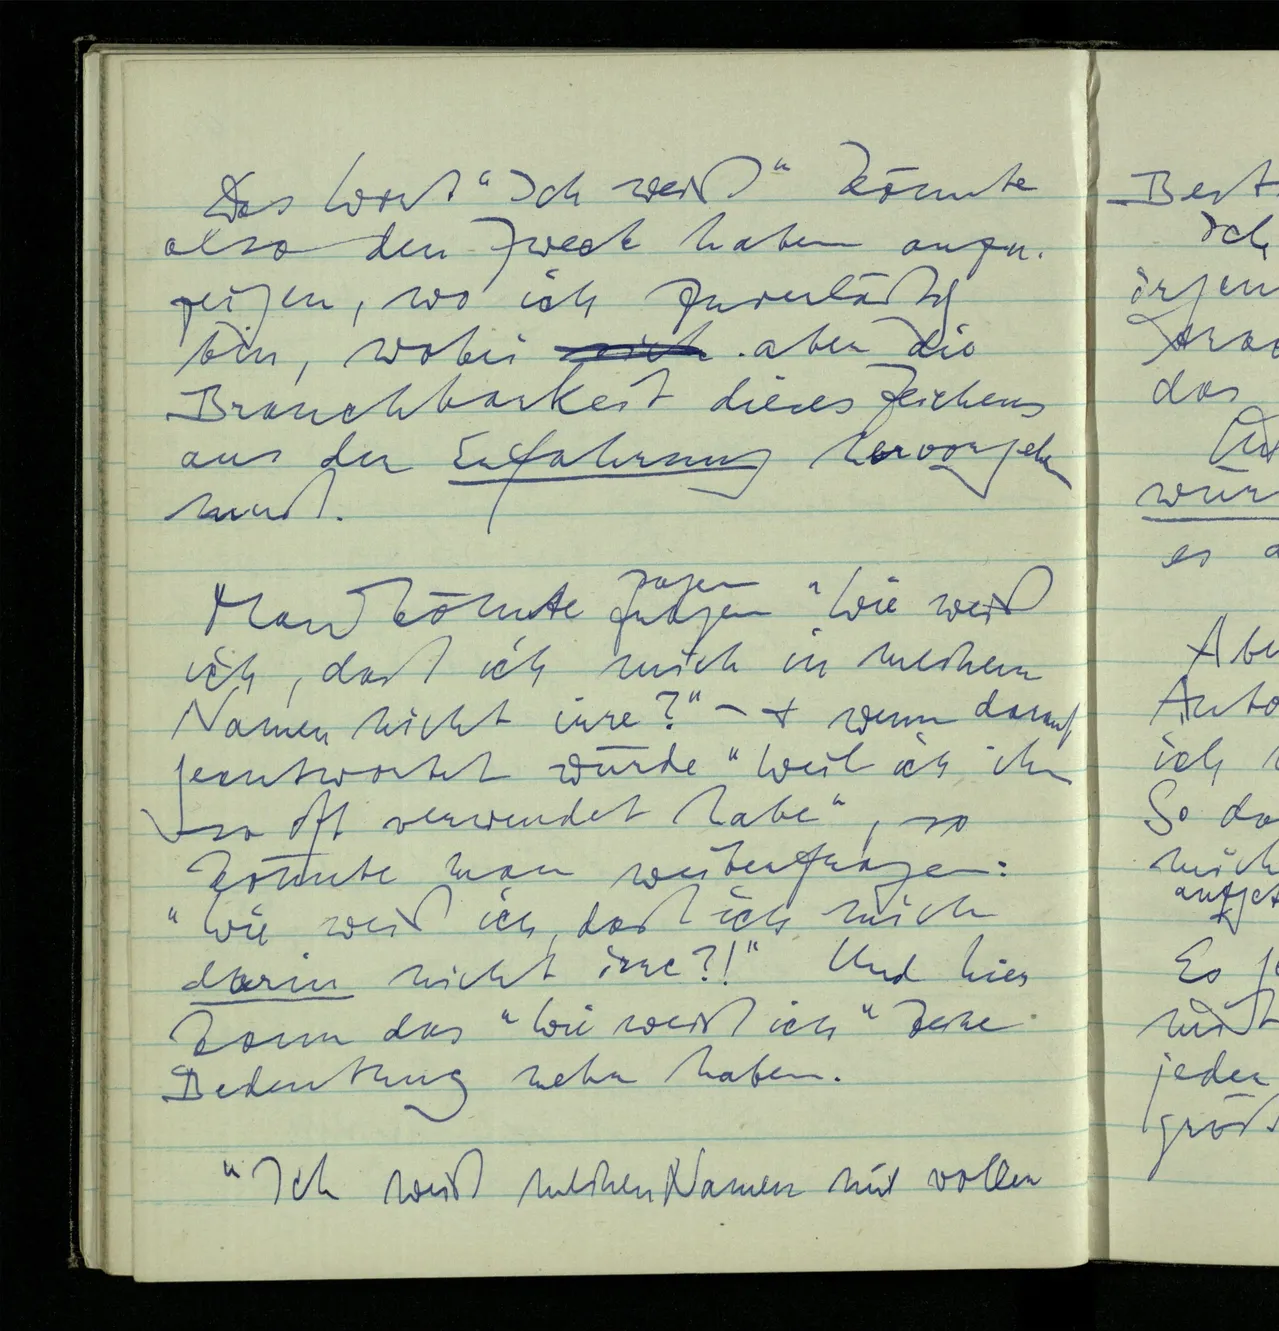 Das Wort "Ich weiß" könnte
also den Zweck haben anzu-
zeigen, wo ich zuverläßig
bin, wobei aber die
Brauchbarkeit dieses Zeichens
aus der Erfahrung hervorgehen
muß.
Man könnte sagen
fragen "Wie weiß
ich, daß ich mich in meinem
Namen nicht irre?" – + wenn darauf
geantwortet würde "Weil ich ihn
so oft verwendet habe", so
könnte man weiterfragen:
"Wie weiß ich, daß ich mich
darin nicht irre?!" Und hier
kann das "Wie weiß ich" keine
Bedeutung mehr haben.
"Ich weiß meinen Namen mit voller
Best
Ich
irgen
das
wür
es a
Abe
Auto
ich
So da
mich
Es g
mit
jeder
größ